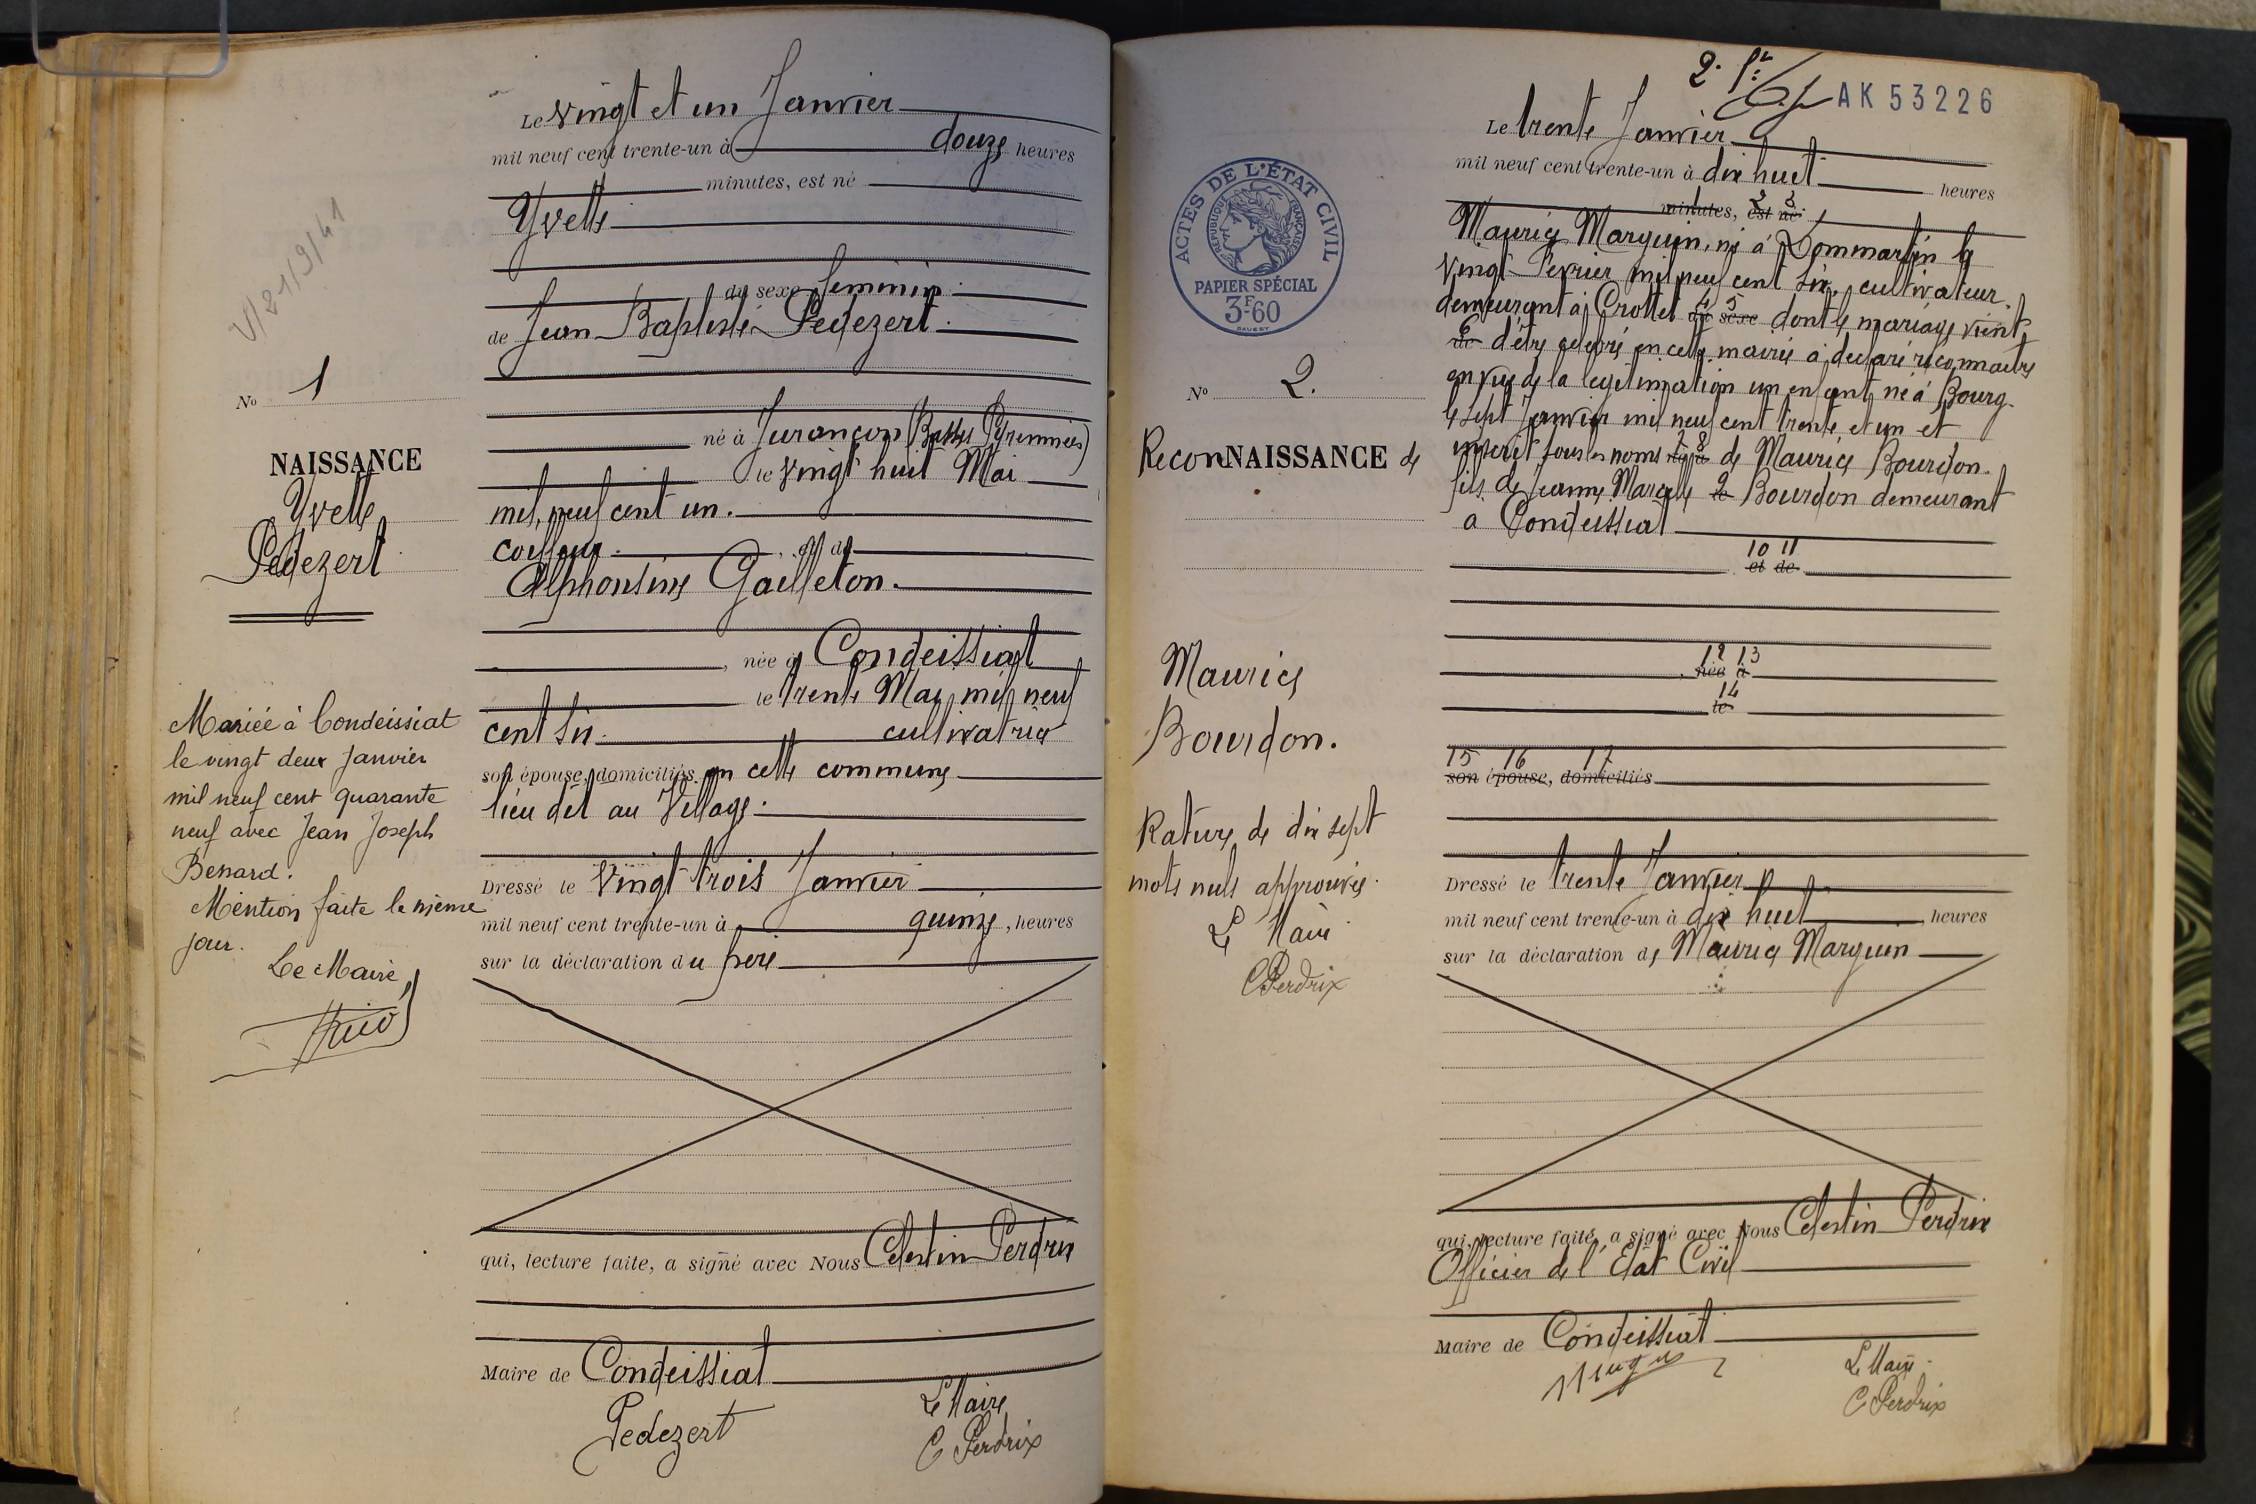 V/21/9/41
N° 1
NAISSANCE
Yvette
Pedezert
Mariée à Condeissiat
le vingt deux Janvier
mil neuf cent quarante
neuf avec Jean Joseph
Benard.
Mention faite le même
jour.
Le Maire,
Le vingt et un Janvier
mil neuf cent trente-un à douze heures
minutes, est né
Yvette
du sexe feminin
de Jean Baptiste Pedezert
né à Jurançon (Basses Pyrennées)
le vingt huit Mai
mil neuf cent un.
coiffeur, et de
Alphonsine Gailleton.
, née à Condeissiat
le trente Mai mil neuf
cent six. cultivatrice
son épouse, domiciliés en cette commune
lieu dit au Village.
Dressé le vingt trois Janvier
mil neuf cent trente-un à quinze, heures
sur la déclaration du père
qui, lecture faite, a signé avec Nous Celestin Perdrix
Maire de Condeissiat
Pedezert
Le Maire
C Perdrix
2. AK 53226
ACTES DE L'ÉTAT CIVIL
RÉPUBLIQUE FRANÇAISE
PAPIER SPÉCIAL
3F.60
N° 2.
ReconNAISSANCE de
Maurice
Bourdon.
Rature de dix sept
mots nuls approuvée.
Le Maire
C Perdrix
Le trente Janvier
mil neuf cent trente-un à dix huit heures
1 2 3
minutes, est né
Maurice Marguin, né à Dommartin le
vingt Février mil neuf cent six, cultivateur.
demeurant à Crottet 4 5 du sexe dont le mariage vient
6 de d'être celebré en cette mairie a declaré reconnaitre
en vue de la legitimation un enfant né à Bourg.
le sept Janvier mil neuf cent trente et un et
inscrit sous les noms 7 8 né à de Maurice Bourdon.
fils de Jeanne Marcelle 9 le Bourdon demeurant
à Condeissiat
10 11
et de
12 13
, née à
14
le
15 16 17
son épouse, domiciliés
Dressé le trente Janvier
mil neuf cent trente-un à dix huit, heures
sur la déclaration de Maurice Marguin
qui, lecture faite, a signé avec Nous Celestin Perdrix
Officier de l'Etat Civil
Maire de Condeissiat
Le Maire
C Perdrix